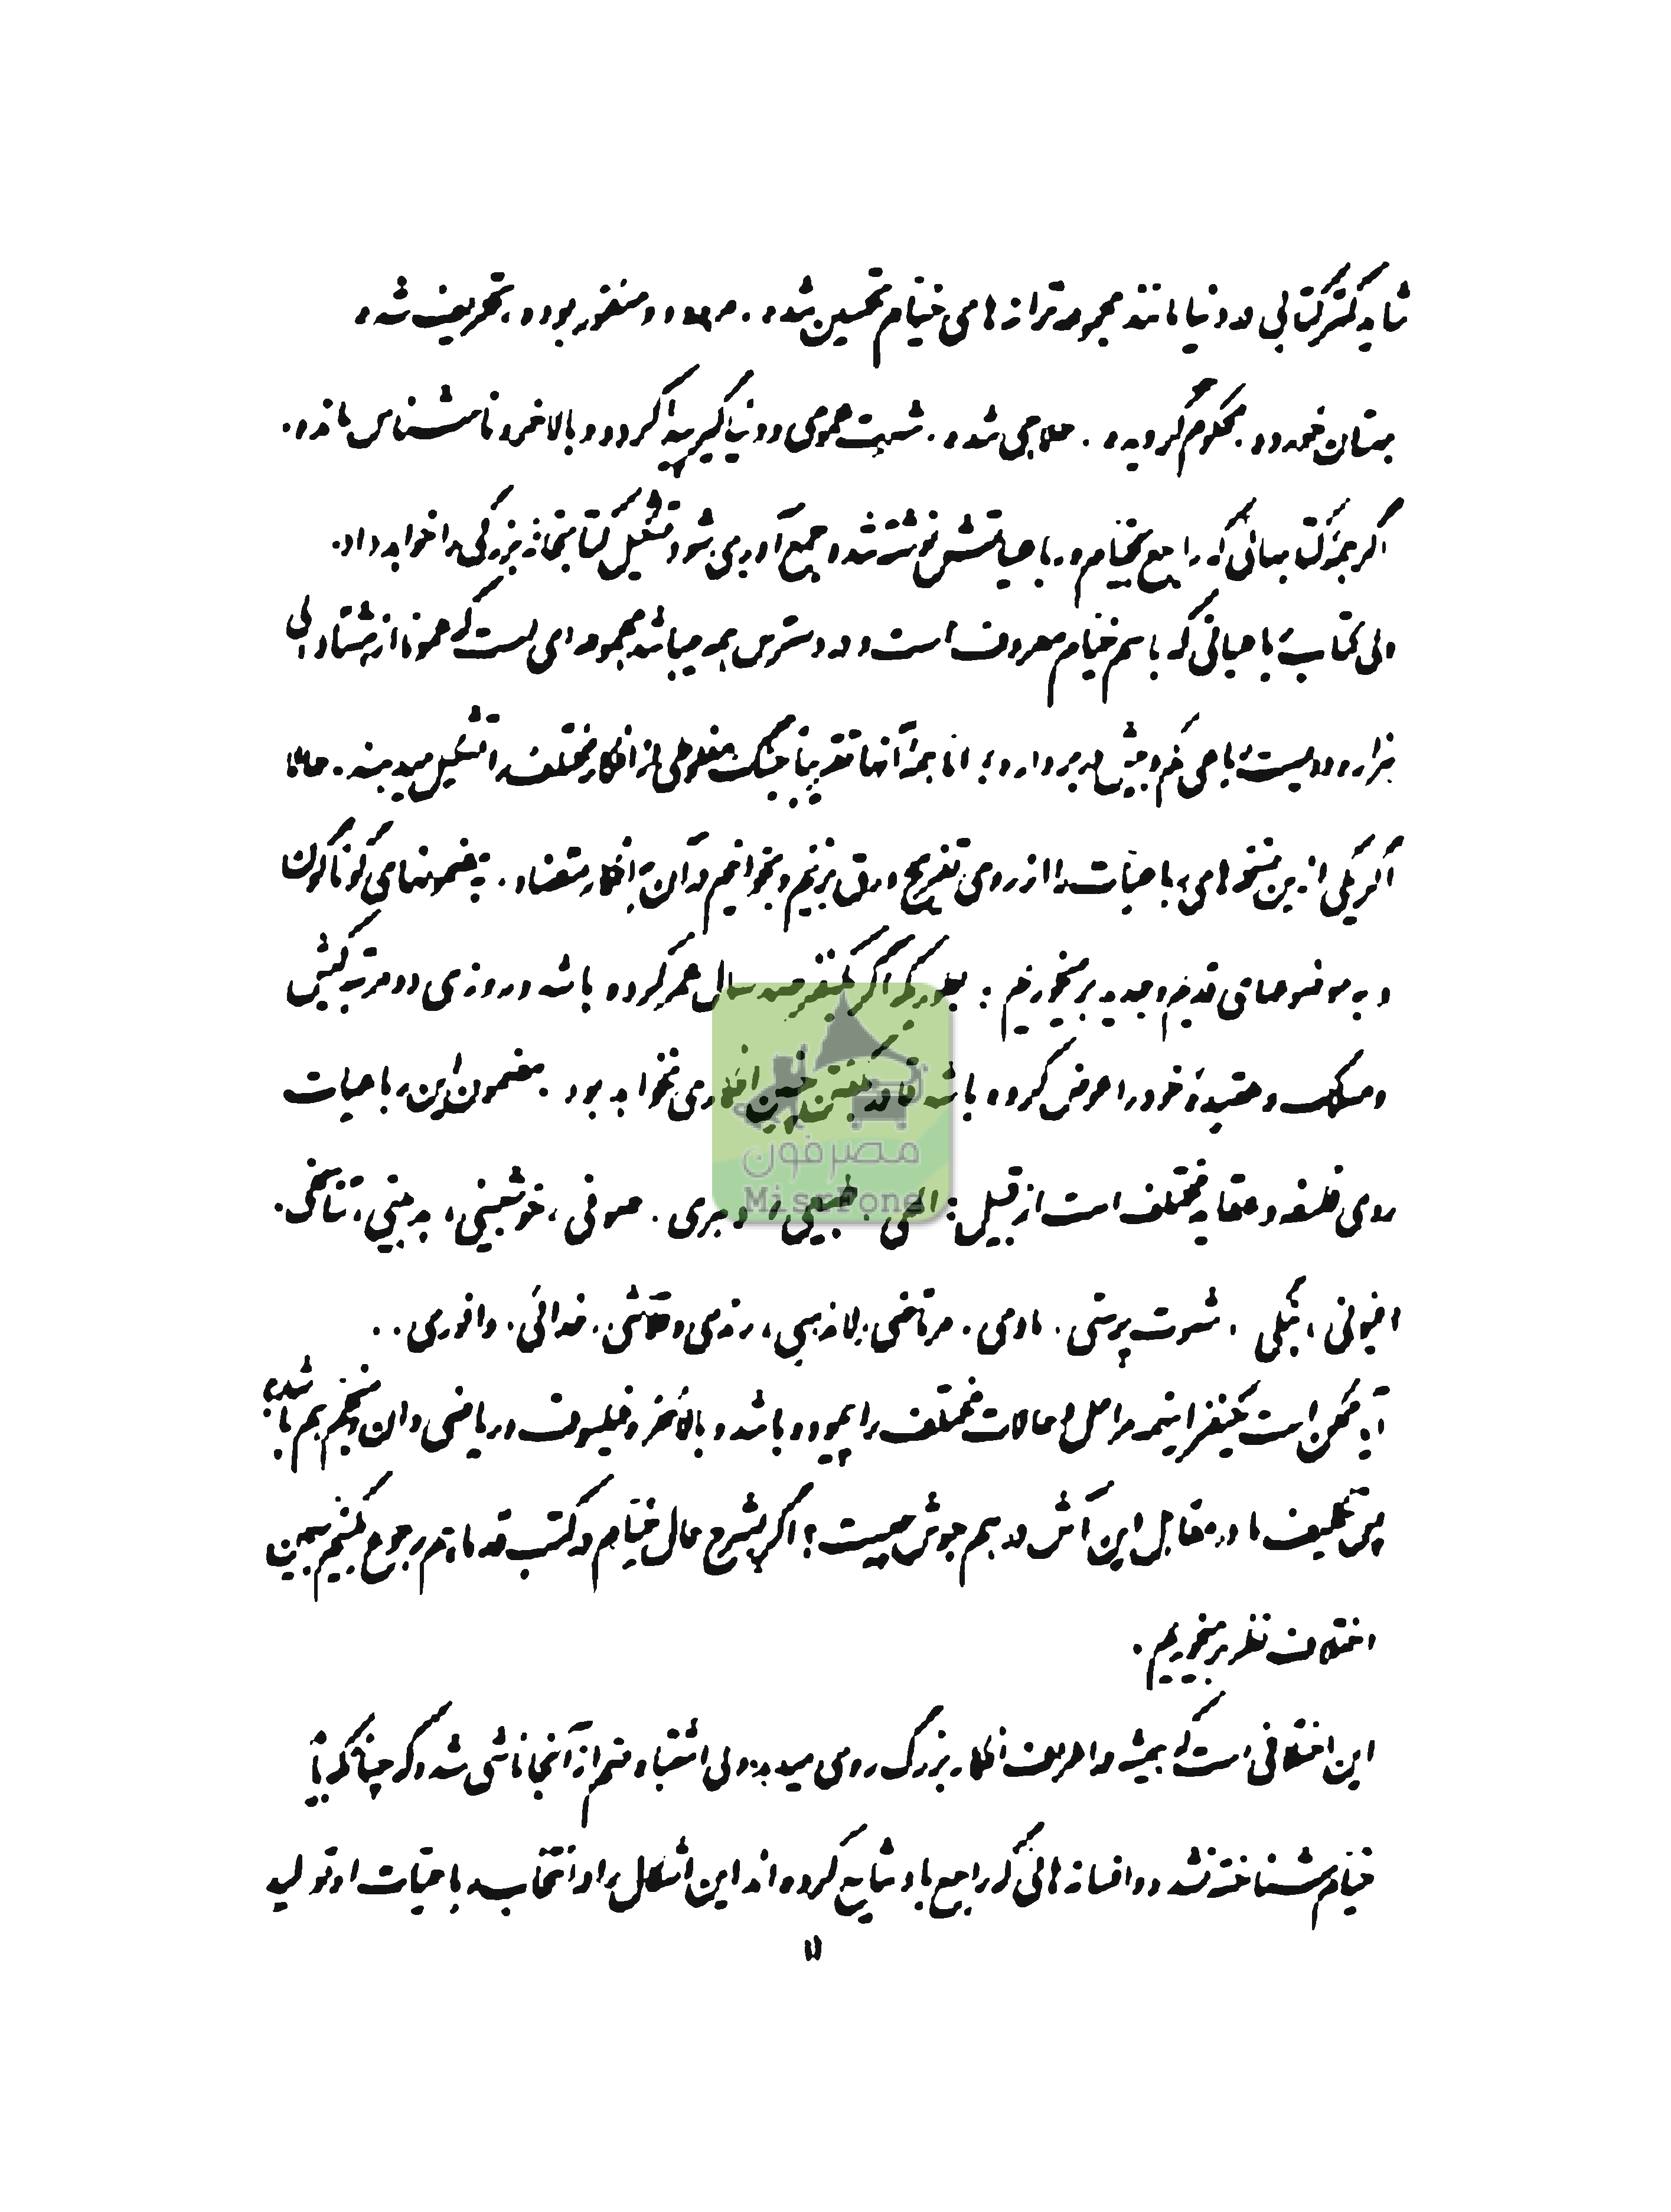 شاید کمتر کتابی در دنیا مانند مجموعه ترانه های خیام تحسین شده، مردود و منفور بوده، تحریف شده
بهتان خورده، محکوم گردیده، حلاجی شده، شهرت عمومی و دنیاگیر پیدا کرده و بالاخره ناشناس مانده.
اگر همه کتابهائی که راجع بخیام و رباعیاتش نوشته شده جمع آوری شود تشکیل کتابخانه بزرگی را خواهد داد.
ولی کتاب رباعیاتی که باسم خیام معروف است و در دسترس همه میباشد مجموعه ای است که عموما از هشتاد الی
هزار و دویست رباعی کم و بیش در بر دارد؛ اما همه آنها تقریبا جنگ مغلوطی از افکار مختلف را تشکیل میدهند. حالا
اگر یکی از این نسخه های رباعیات را از روی تفریح ورق بزنیم و بخوانیم در آن به افکار متضاد، به مضمونهای گوناگون
و به موضوعهای قدیم و جدید برمیخوریم؛ بطوریکه اگر یکنفر صد سال عمر کرده باشد و روزی دو مرتبه کیش
و مسلک و عقیده خود را عوض کرده باشد قادر بگفتن چنین افکاری نخواهد بود. مضمون این رباعیات
روی فلسفه و عقاید مختلف است از قبیل: الهی، طبیعی، دهری، صوفی، خوشبینی، بدبینی، تناسخی،
افیونی، بنگی، شهوت پرستی، مادی، مرتاضی، لامذهبی، رندی و قلاشی، خدائی، وافوری..
آیا ممکن است یکنفر اینهمه مراحل و حالات مختلف را پیموده باشد و بالاخره فیلسوف و ریاضی دان و منجم هم باشد؟
پس تکلیف ما در مقابل این آش در هم جوش چیست؟ اگر بشرح حال خیام در کتب قدما هم رجوع بکنیم بهمین
اختلاف نظر برمیخوریم.
این اختلافی است که همیشه در اطراف افکار بزرگ روی میدهد. ولی اشتباه مهم از آنجا ناشی شده که چنانکه باید
خیام شناخته نشده و افسانه هائی که راجع باو شایع کرده اند این اشکال را در انتخاب رباعیات او تولید
۱۱
مصرفون
MisrFone